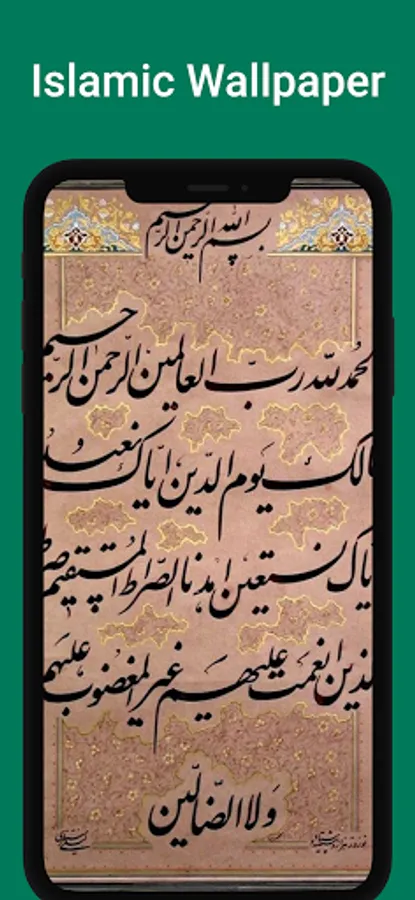 Islamic Wallpaper
بسم الله الرحمن الرحيم
لحمد لله رب العالمين الرحمن الرحيم
الك يوم الدين اياك نعبد
ياك نستعين اهدنا الصراط المستقيم
لذين انعمت عليهم غير المغضوب عليهم
ولا الضالين